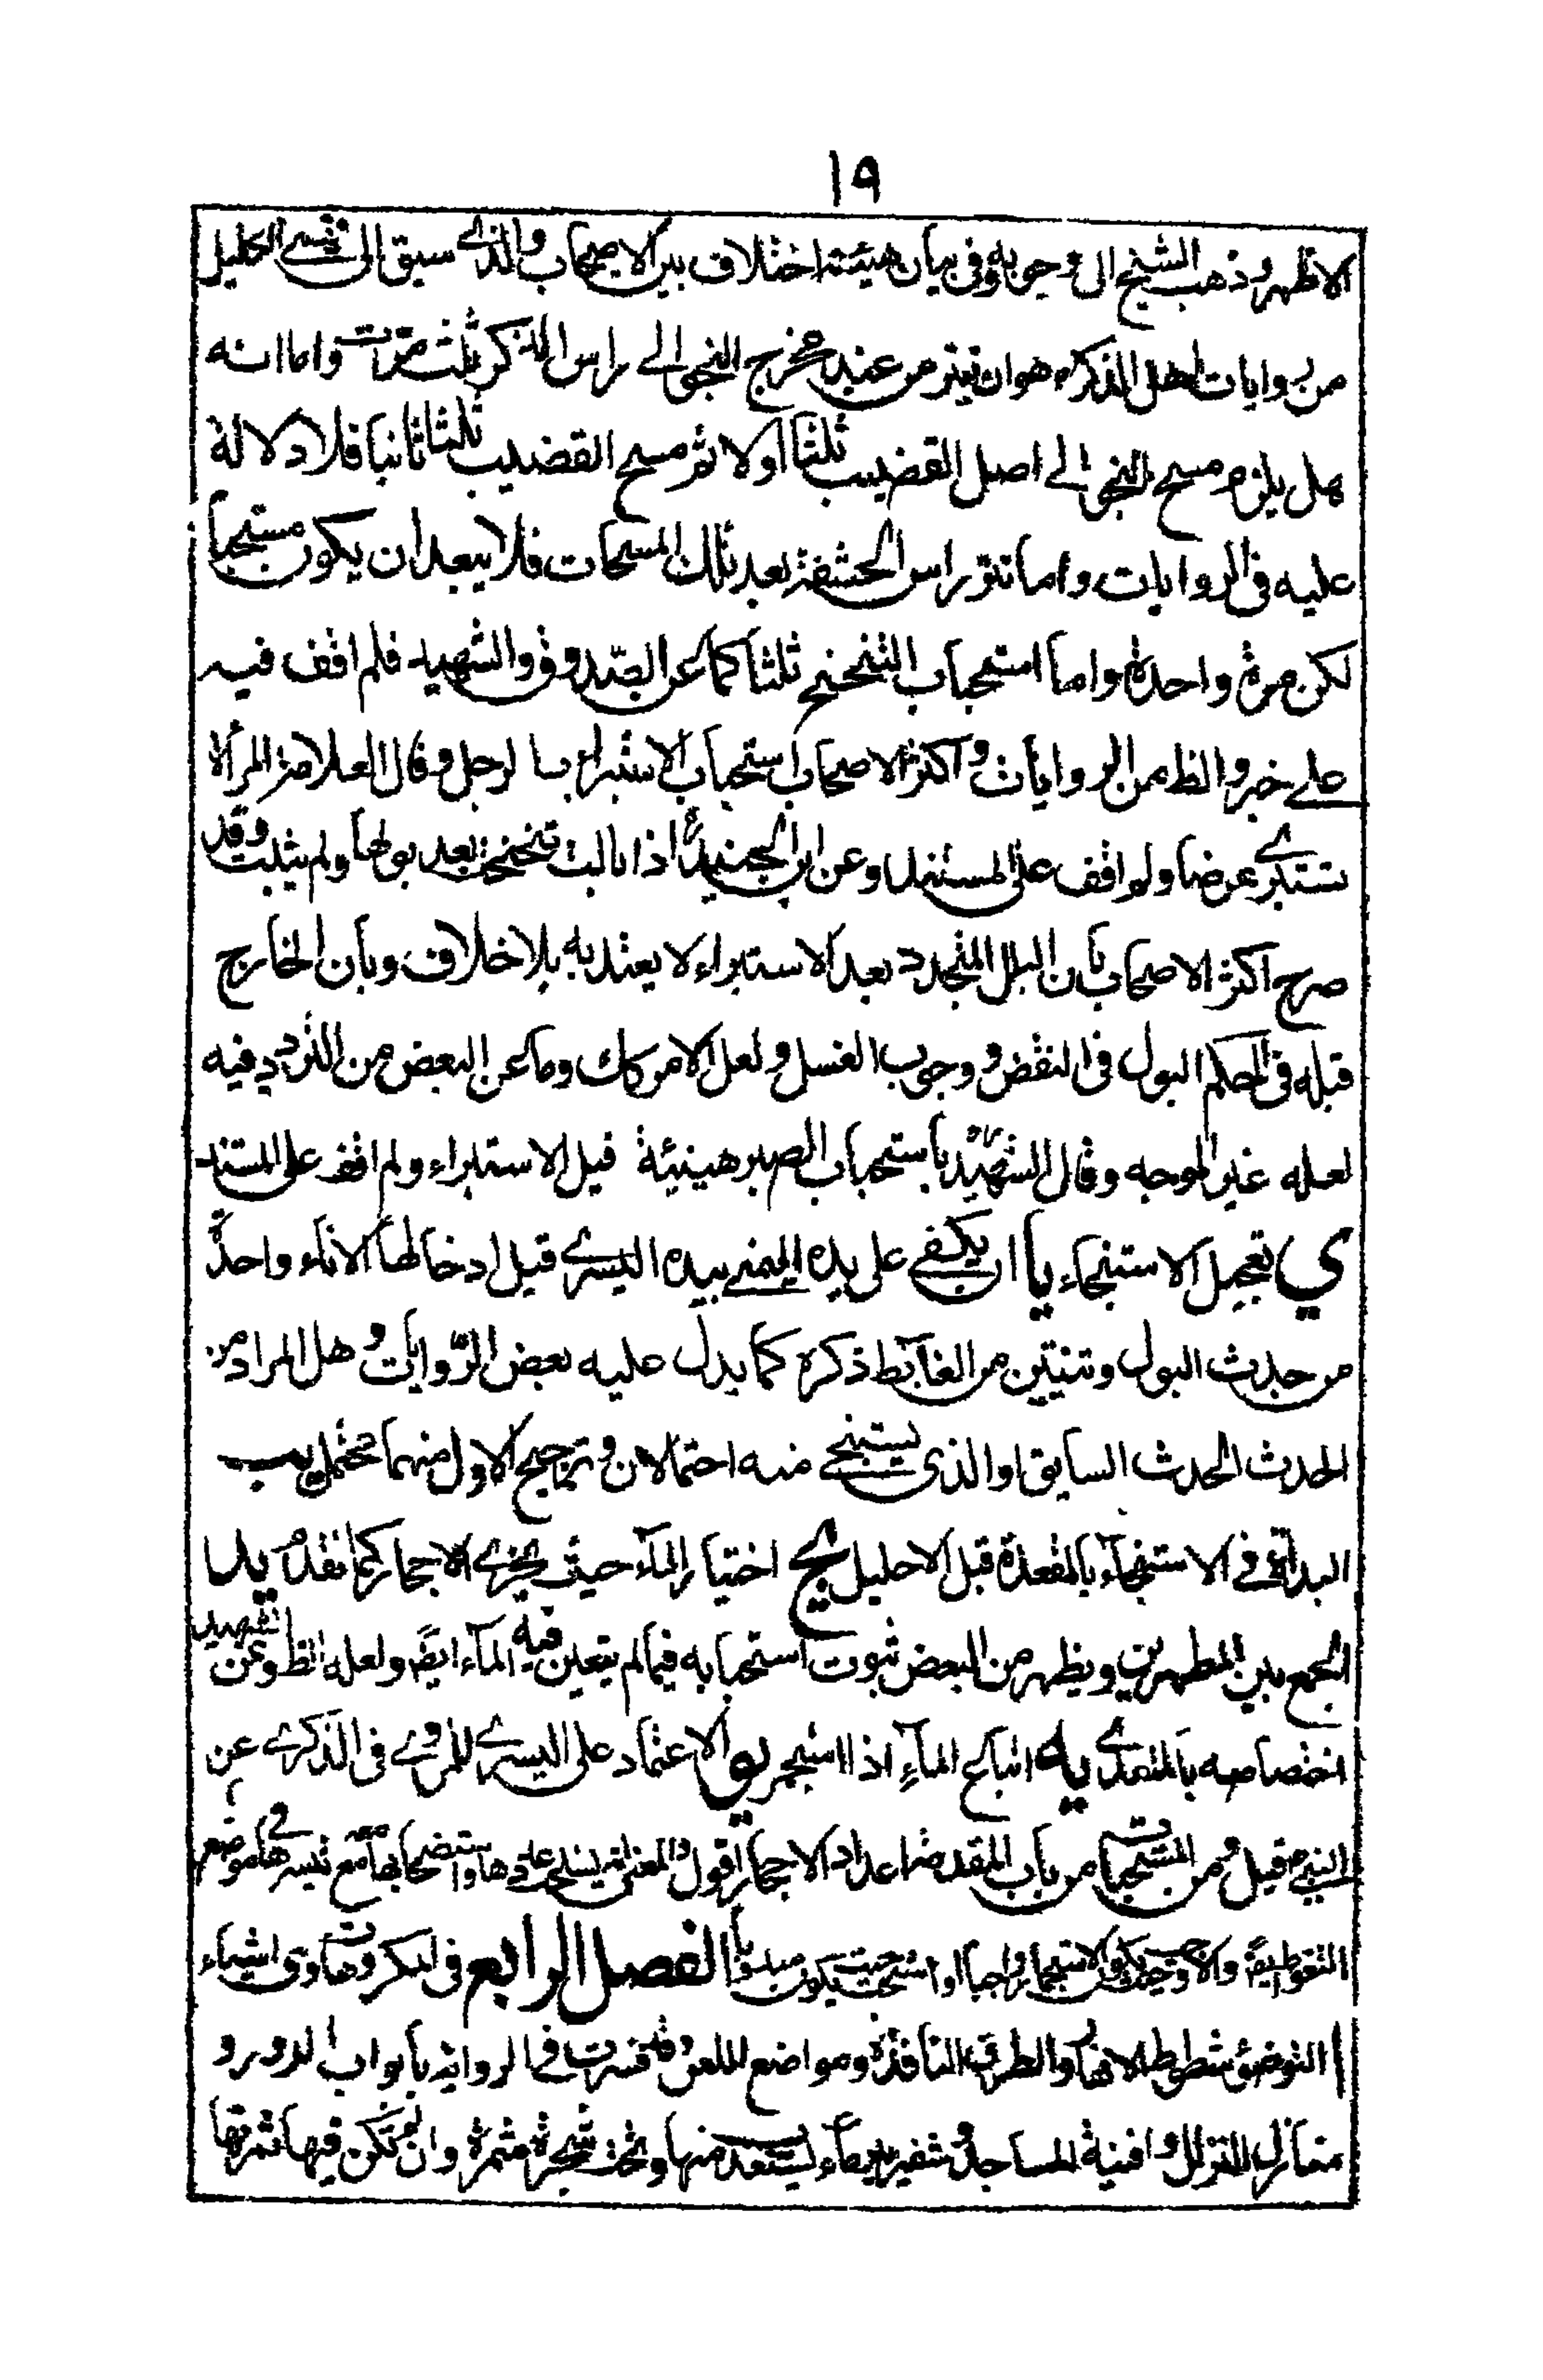 ١٩
الاظهر وذهب الشيخ الى وجوبه وفى بيان هيئته اختلاف بين الاصحاب والذى سبق الى
من روايات اهل الذكر هو ان تعتر من عند مخرج النجو الى راس الذكر ثلث مرات واما انه
هل يلزم مسح النجو الى اصل القضيب ثلثا اولا ثم مسح القضيب ثلثا ثانيا فلا دلالة
عليه فى الروايات واما نتر راس الحشفة بعد تلك المسحات فلا يبعد ان يكون مستحبا
لكن مرة واحدة واما استحباب التنحنح ثلثا كما عن الصدوق والشهيد فلم اقف فيه
على خبر والظ من الروايات واكثر الاصحاب استحباب الاستبراء بالرجل وقال العلامة المرأة
تستبرى عرضا ولم اقف على المستند وعن ابن الجنيد اذا بالت تنحنحت بعد بولها ولم يثبت وقد
صرح اكثر الاصحاب بان البلل المتجدد بعد الاستبراء لا يعتد به بلا خلاف وبان الخارج
قبله فى حكم البول فى النقض ووجوب الغسل ولعل الامر كك وما عن البعض من التردد فيه
لعله غير الموجه وقال الشهيد باستحباب الصبر هنيئة قبل الاستبراء ولم اقف على المستند
ي تعجيل الاستنجاء يا ان يكفى على يده اليمنى بيده اليسرى قبل ادخالها الاناء واحدة
من حدث البول وثنتين من الغائط ذكره كما يدل عليه بعض الروايات وهل المراد من
الحدث الحدث السابق او الذى يستنجى منه احتمالان وترجيح الاول منهما محتمل يب
البدأة فى الاستنجاء بالمقعدة قبل الاحليل يج اختيار الماء حيث يجزى الاحجار كما تقدم يد
الجمع بين المطهرين ويظهر من البعض ثبوت استحبابه فيما لم يتعين فيه الماء ايضا ولعله الظ وعن الشهيد
اختصاصه بالمتعدى يه اتباع الماء اذا استجمر يو الاعتماد على اليسرى للمروى فى الذكرى عن
النبى قيل ومن المستحبات من باب المقدمة اعداد الاحجار اقول
التغوط ايضا الاستجمار واجبا او مستحبا يكون مندوبا الفصل الرابع فى المكروهات وهى اشياء
ا التوضؤ شطوط الانهار والطرق النافذة ومواضع اللعن وقد فسرت فى الرواية بابواب الدور و
منازل النزال وافنية المساجد وشفير بئر ماء يستعذب منها وتحت شجرة مثمرة وان لم تكن فيها ثمرتها